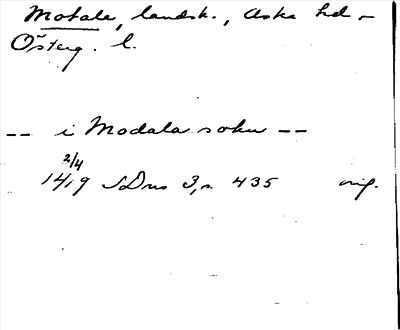 Motala, landsk., Aska hd
Österg. l.
-- i Modala sokn --
2/4
1419 SDns 3, s. 435 orig.